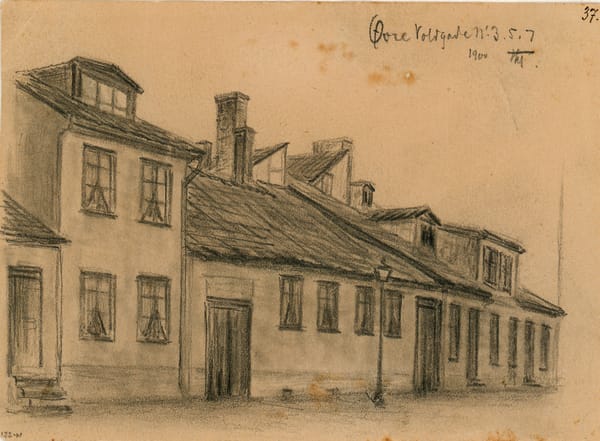 37.
Øvre Voldgade Nº 3. 5. 7
1900